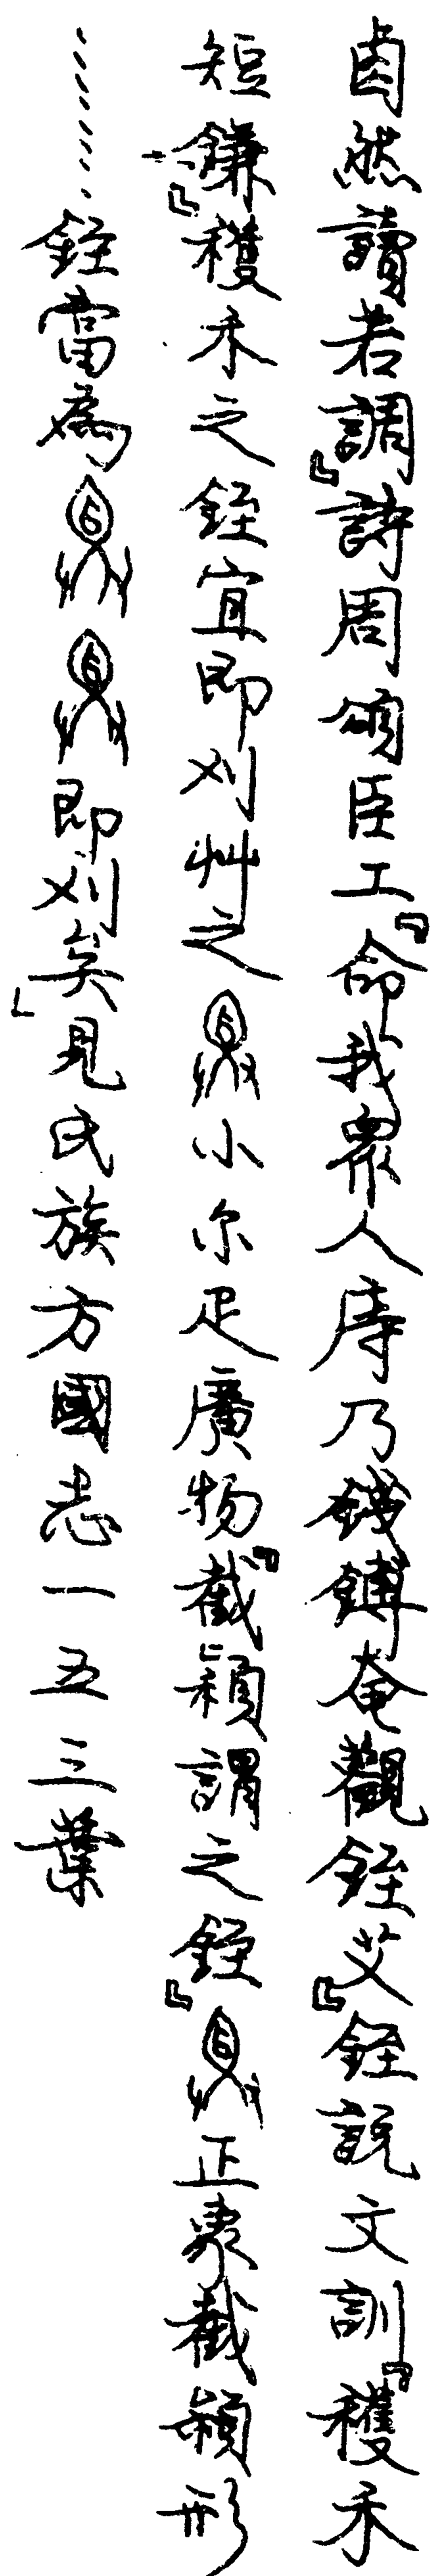 卣然讀若調』詩周頌臣工『命我眾人庤乃錢鎛奄觀銍艾』銍說文訓『穫禾
短鎌』穫禾之銍宜即刈艸之小尔疋廣物『截』穎謂之銍』正象截穎形
……銍當為即刈矣」見氏族方國志一五三葉